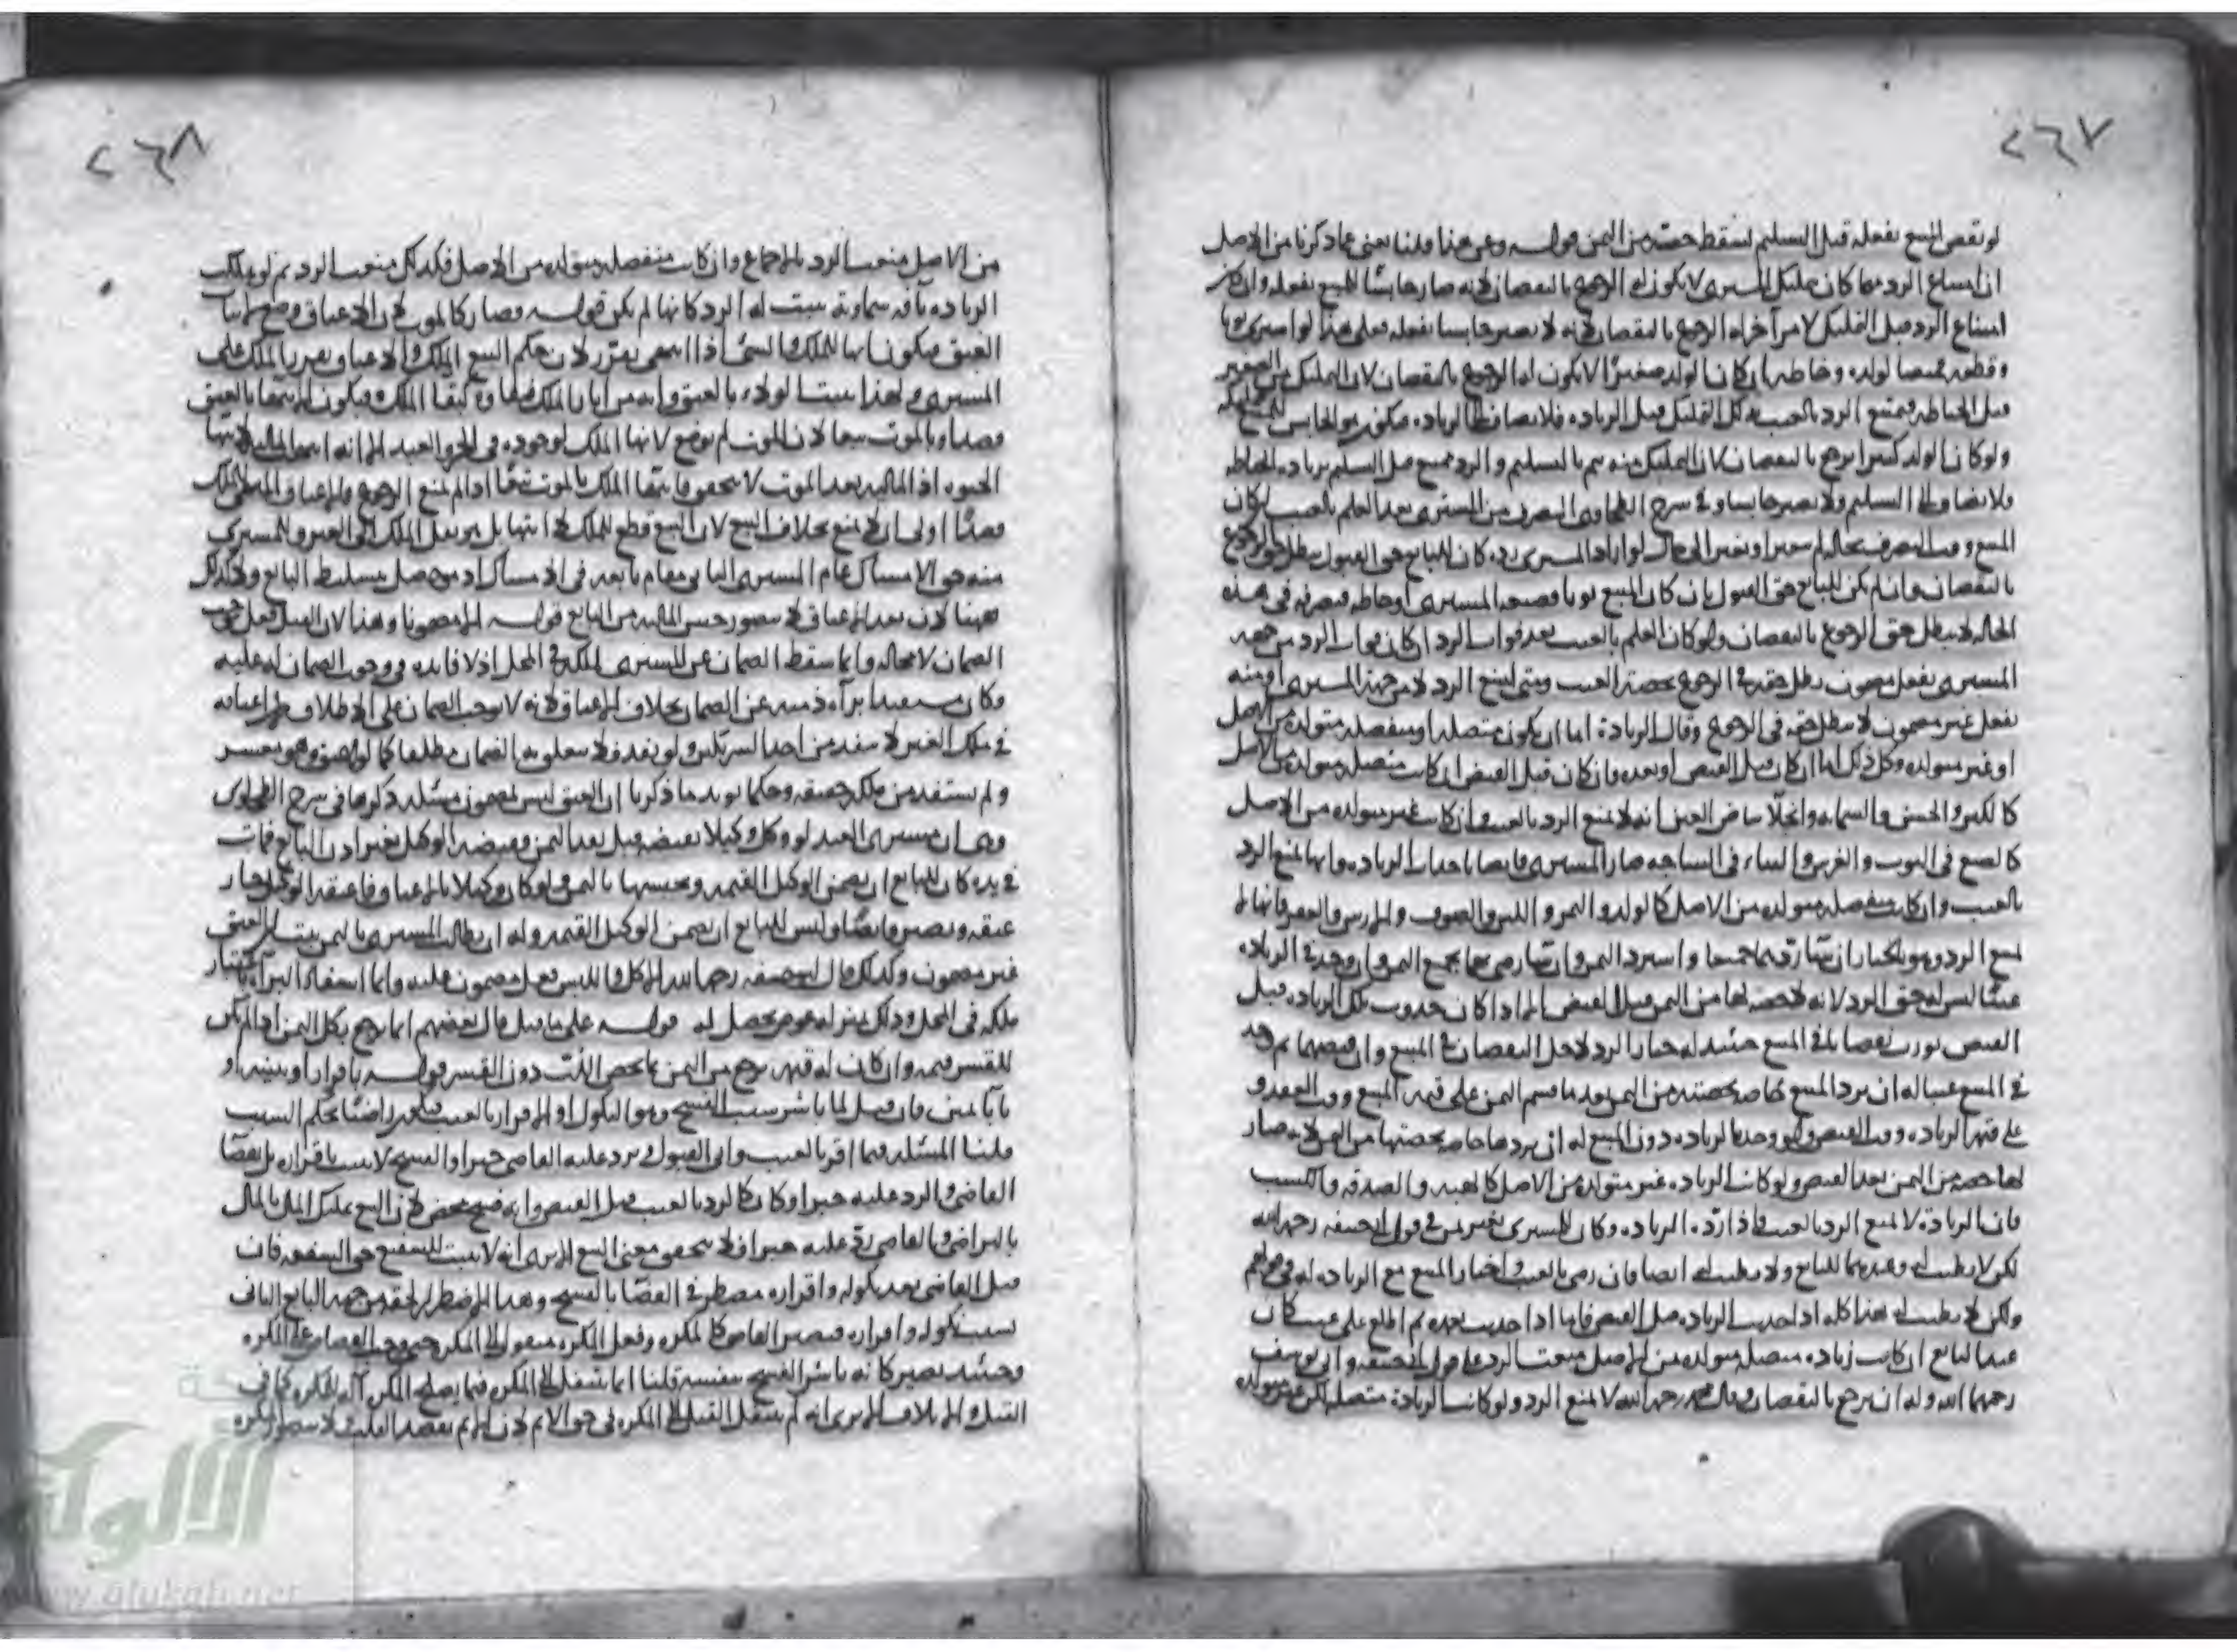 ٢٦٧
لو نقص المبيع بفعله قبل التسليم لسقط حصته من الثمن قوله وعن هذا قلنا يعني عما ذكرنا من الاصل
ان امتناع الرد متى كان بتمليك المشتري لا يكون له الرجوع بالنقصان لانه صار حابسا للمبيع بفعله وان كان
امتناع الرد قبل التمليك لامر آخر له الرجوع بالنقصان لانه لا يصير حابسا بفعله فعلى هذا لو اشترى ثوبا
وقطعه قميصا لولده وخاطه ان كان الولد صغيرا لا يكون له الرجوع بالنقصان لان التمليك من الصغير
قبل الخياطة فيمتنع الرد بالعيب التمليك قبل الزيادة فلا يضاف الى الزيادة فيكون هو الحابس للمبيع
ولو كان الولد كبيرا يرجع بالنقصان لان التمليك منه يتم بالتسليم والرد ممتنع قبل التسليم بزيادة الخياطة
فلا يضاف الى التسليم ولا يصير حابسا وفي شرح الطحاوي التصرف من المشتري بعد العلم بالعيب ان كان
المبيع وقت التصرف بحاله لم يتغير او تغير الى حال لو اراد المشتري رده كان للبايع حق القبول يبطل حق الرجوع
بالنقصان وان لم يكن للبايع حق القبول بان كان المبيع ثوبا فصبغه المشتري او خاطه فتصرفه في هذه
الحالة لا يبطل حق الرجوع بالنقصان ولو كان العلم بالعيب بعد فوات الرد ان كان فوات الرد من جهة
المشتري بفعل مضمون بطل حقه في الرجوع بحصة العيب ومتى امتنع الرد لا من جهة المشتري او منه
بفعل غير مضمون لا يبطل حقه في الرجوع وقال الزيادة اما ان يكون متصلة او منفصلة متولدة من الاصل
او غير متولدة وكل ذلك اما ان كان قبل القبض او بعده وان كان قبل القبض ان كانت متصلة متولدة من الاصل
كالكبر والحسن والسمانة وانجلاء بياض العين انه لا يمنع الرد بالعيب وان كانت غير متولدة من الاصل
كالصبغ في الثوب والغرس والبناء في الساحة صار المشتري قابضا باحداث الزيادة وانها تمنع الرد
بالعيب وان كانت منفصلة متولدة من الاصل كالولد والثمر واللبن والصوف والارش والعقر فانها لا
تمنع الرد وهو بالخيار ان شاء ردهما جميعا واسترد الثمن وان شاء رضي بهما بجميع الثمن وان وجد في الزيادة
عيبا ليس له حق الرد لانه لا حصة لها من الثمن قبل القبض الا اذا كان حدوث تلك الزيادة قبل
القبض تورث نقصانا في المبيع حينئذ له خيار الرد لاجل النقصان في المبيع وان قبضهما ثم وجد
في المبيع عيبا له ان يرد المبيع خاصة بحصته من الثمن بعد ما قسم الثمن على قيمة المبيع وقت العقد و
على قيمة الزيادة وقت القبض ولو وجد بالزيادة دون المبيع له ان يردها خاصة بحصتها من الثمن لانه صار
لها حصة من الثمن بعد القبض ولو كانت الزيادة غير متولدة من الاصل كالهبة والصدقة والكسب
فان الزيادة لا تمنع الرد بالعيب فاذا رده الزيادة وكان للمشتري بغير ثمن في قول ابي حنيفة رحمه الله
لكن لا يطيب له وعندهما للبايع ولا يطيب له ايضا فان رضي بالعيب واختار المبيع مع الزيادة له في قولهم
ولكن لا يطيب له هذا كله اذا حدثت الزيادة قبل القبض فاما اذا حدثت بعده ثم اطلع على عيب كان
عند البايع ان كانت زيادة متصلة متولدة من الاصل منعت الرد على قول ابي حنيفة وابي يوسف
رحمهما الله وله ان يرجع بالنقصان وقال محمد رحمه الله لا تمنع الرد ولو كانت الزيادة متصلة لكن غير متولدة
٢٦٨
من الاصل منعت الرد بالاجماع وان كانت منفصلة متولدة من الاصل فكذلك منعت الرد ثم لو هلكت
الزيادة بآفة سماوية يثبت له الرد كانها لم يكن قوله وصار كالموت لان الاعتاق وضع لاثبات
العتق فيكون انهاء للملك والشئ اذا انتهى يتقرر لان حكم البيع الملك والاعتاق يقرر الملك على
المشتري ولهذا يثبت الولاء بالعتق وانه من آثار الملك فبقاؤه كبقاء الملك فيكون الانتهاء بالعتق
قصدا وبالموت تبعا لان الموت لم يوضع لانهاء الملك لوجوده في الحر والعبد الا انه انتهى المالية لانتهاء
الحيوة اذ المالية بعد الموت لا يتحقق فانتهاء الملك بالموت تبعا اذا لم يمنع الرجوع فالاعتاق المنهي للملك
قصدا اولى ان لا يمنع بخلاف البيع لان البيع قطع للملك لا انتهاء بل هو نقل الملك الى الغير والمشتري
منه حق الامساك قام المشتري الثاني مقام بايعه في الامساك اذ هو حصل بتسليط البايع ولا كذلك
ههنا لان بعد الاعتاق لا يتصور حبس المالية من البايع قوله الا مضمونا وهذا لان القتل فعل يوجب
الضمان لا محالة وانما سقط الضمان عن المشتري لملكه في المحل اذ لا فائدة في وجوب الضمان له عليه
وكان مستفيدا براءة ذمته عن الضمان بخلاف الاعتاق لانه لا يوجب الضمان على الاطلاق فان اعتاقه
في ملك الغير لا ينفذ من احد الشريكين ولو نفذ فلا يتعلق به الضمان مطلقا كما لو اعتق وهو معسر
ولم يستفد من ملكه حقيقة وحكما يؤيد ما ذكرنا ان العتق ليس بمضمون مسئلة ذكرها في شرح الطحاوي
وهي ان مشتري العبد لو وكل وكيلا بقبضه قبل نقد الثمن وقبضه الوكيل بغير اذن البايع فمات
في يده كان للبايع ان يضمن الوكيل القيمة ويحبسها بالثمن ولو كان وكيلا بالاعتاق فاعتقه الوكيل جاز
عتقه ويصير قابضا وليس للبايع ان يضمن الوكيل القيمة وله ان يطالب المشتري بالثمن العتق
غير مضمون وكذلك قال ابو حنيفة رحمه الله الاكل واللبس فعل مضمون عليه وانما استفاد البراءة باعتبار
ملكه في المحل وذلك بمنزلة عوض يحصل له قوله على ما قيل قال بعضهم انما يرجع بكل الثمن اذا لم يكن
للقشر قيمة وان كان له قيمة يرجع من الثمن بما يخص اللب دون القشر قوله باقرار او ببينة او
باباء يمين فان قيل لما باشر سبب الفسخ وهو النكول او الاقرار بالعيب راضيا بحكم السبب
قلنا المسئلة فيما اقر بالعيب وابى القبول فيرد عليه القاضي جبرا والفسخ لا يثبت باقراره بل بقضاء
القاضي والرد عليه جبرا وكان كالرد بالعيب قبل القبض وانه فسخ محض لان البيع تمليك المال بالمال
بالتراضي والقاضي رده عليه جبرا فلا يتحقق معنى البيع الا يرى انه لا يثبت للشفيع حق الشفعة فان
قيل القاضي بعد نكوله واقراره مضطر في القضاء بالفسخ وهذا الاضطرار لحقه من جهة البايع الثاني
بسبب نكوله واقراره فيصير القاضي كالمكره وفعل المكره منقول الى المكره حتى وجب القصاص على المكره
وحينئذ يصير كانه باشر الفسخ بنفسه قلنا انما ينتقل الى المكره فيما يصلح المكره آلة للمكره كما في
القتل والاتلاف الا يرى انه لم ينتقل القتل الى المكره في حق الاثم لان الاثم بقصد القلب لا يتصور
الالوكة
www.alukah.net